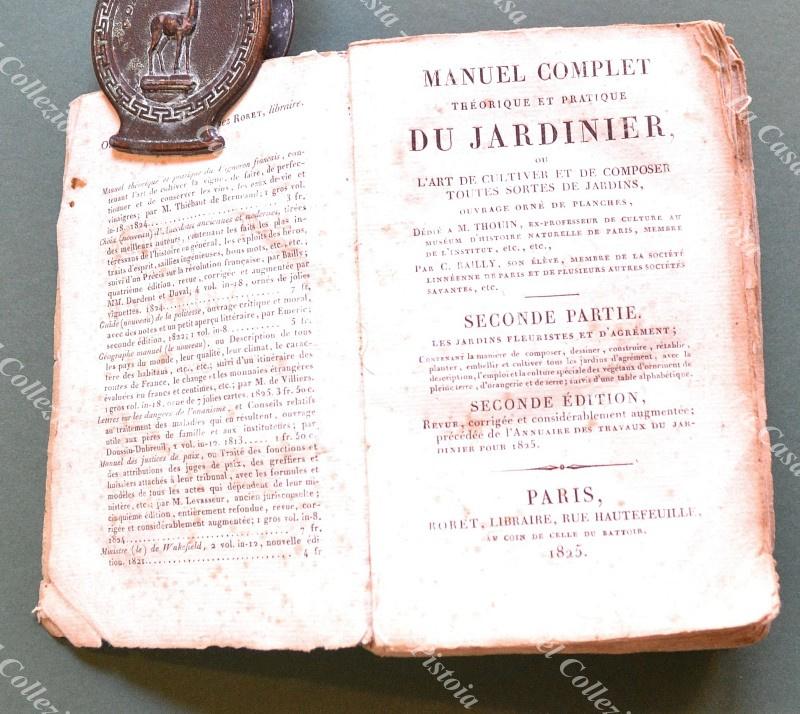 ez RORET, libraire.
Manuel théorique et pratique du Vigneron français, con-
tenant l'art de cultiver la vigne, de faire, de perfec-
tionner et de conserver les vins, les eaux de vie et
vinaigres; par M. Thiébaut de Berneaud, 1 gros vol.
in-18, 1824. 3 fr.
Choix (nouveau) d'Anecdotes anciennes et modernes, tirées
des meilleurs auteurs, contenant les faits les plus in-
téressans de l'histoire en général, les exploits des héros,
traits d'esprit, saillies ingénieuses, bons mots, etc., etc.,
suivi d'un Précis sur la révolution française, par Bailly;
quatrième édition, revue, corrigée et augmentée par
MM. Durdent et Doval, 4 vol. in-18, ornés de jolies
vignettes. 1824. 7 fr.
Guide (nouveau) de la politesse, ouvrage critique et moral,
avec des notes et un petit aperçu littéraire, par Emeric;
seconde édition, 1822; 1 vol. in-8. 5 fr.
Géographe manuel (le nouveau), ou Description de tous
les pays du monde, leur qualité, leur climat, le carac-
tère des habitans, etc., etc.; suivi d'un itinéraire des
routes de France, le change et les monnaies étrangères
évaluées en francs et centimes, etc.; par M. de Villiers.
1 gros vol. in-18, orné de 7 jolies cartes. 1825. 3 fr. 50 c.
Lettres sur les dangers de l'onanisme, et Conseils relatifs
au traitement des maladies qui en résultent, ouvrage
utile aux pères de famille et aux instituteurs; par
Doussin-Dubreuil, 1 vol. in-12. 1813. 1 fr. 50 c.
Manuel des justices de paix, ou Traité des fonctions et
des attributions des juges de paix, des greffiers et
huissiers attachés à leur tribunal, avec les formules et
modèles de tous les actes qui dépendent de leur mi-
nistère, etc.; par M. Levasseur, ancien jurisconsulte;
cinquième édition, entièrement refondue, revue, cor-
rigée et considérablement augmentée; 1 gros vol. in-8.
1824. 7 fr.
Ministre (le) de Wakefield, 2 vol. in-12, nouvelle édi
tion. 1821. 4 fr
MANUEL COMPLET
THÉORIQUE ET PRATIQUE
DU JARDINIER,
OU
L'ART DE CULTIVER ET DE COMPOSER
TOUTES SORTES DE JARDINS,
OUVRAGE ORNÉ DE PLANCHES,
DÉDIÉ A M. THOUIN, EX-PROFESSEUR DE CULTURE AU
MUSÉUM D'HISTOIRE NATURELLE DE PARIS, MEMBRE
DE L'INSTITUT, etc., etc.,
PAR C. BAILLY, SON ÉLÈVE, MEMBRE DE LA SOCIÉTÉ
LINNÉENNE DE PARIS ET DE PLUSIEURS AUTRES SOCIÉTÉS
SAVANTES, etc.
SECONDE PARTIE.
LES JARDINS FLEURISTES ET D'AGRÉMENT;
CONTENANT la manière de composer, dessiner, construire, rétablir,
planter, embellir et cultiver tous les jardins d'agrément, avec la
description, l'emploi et la culture spéciale des végétaux d'ornement de
pleine terre, d'orangerie et de serre; suivis d'une table alphabétique.
SECONDE ÉDITION,
REVUE, corrigée et considérablement augmentée;
précédée de l'ANNUAIRE DES TRAVAUX DU JAR-
DINIER POUR 1825.
PARIS,
RORET, LIBRAIRE, RUE HAUTEFEUILLE,
AU COIN DE CELLE DU BATTOIR.
1825.